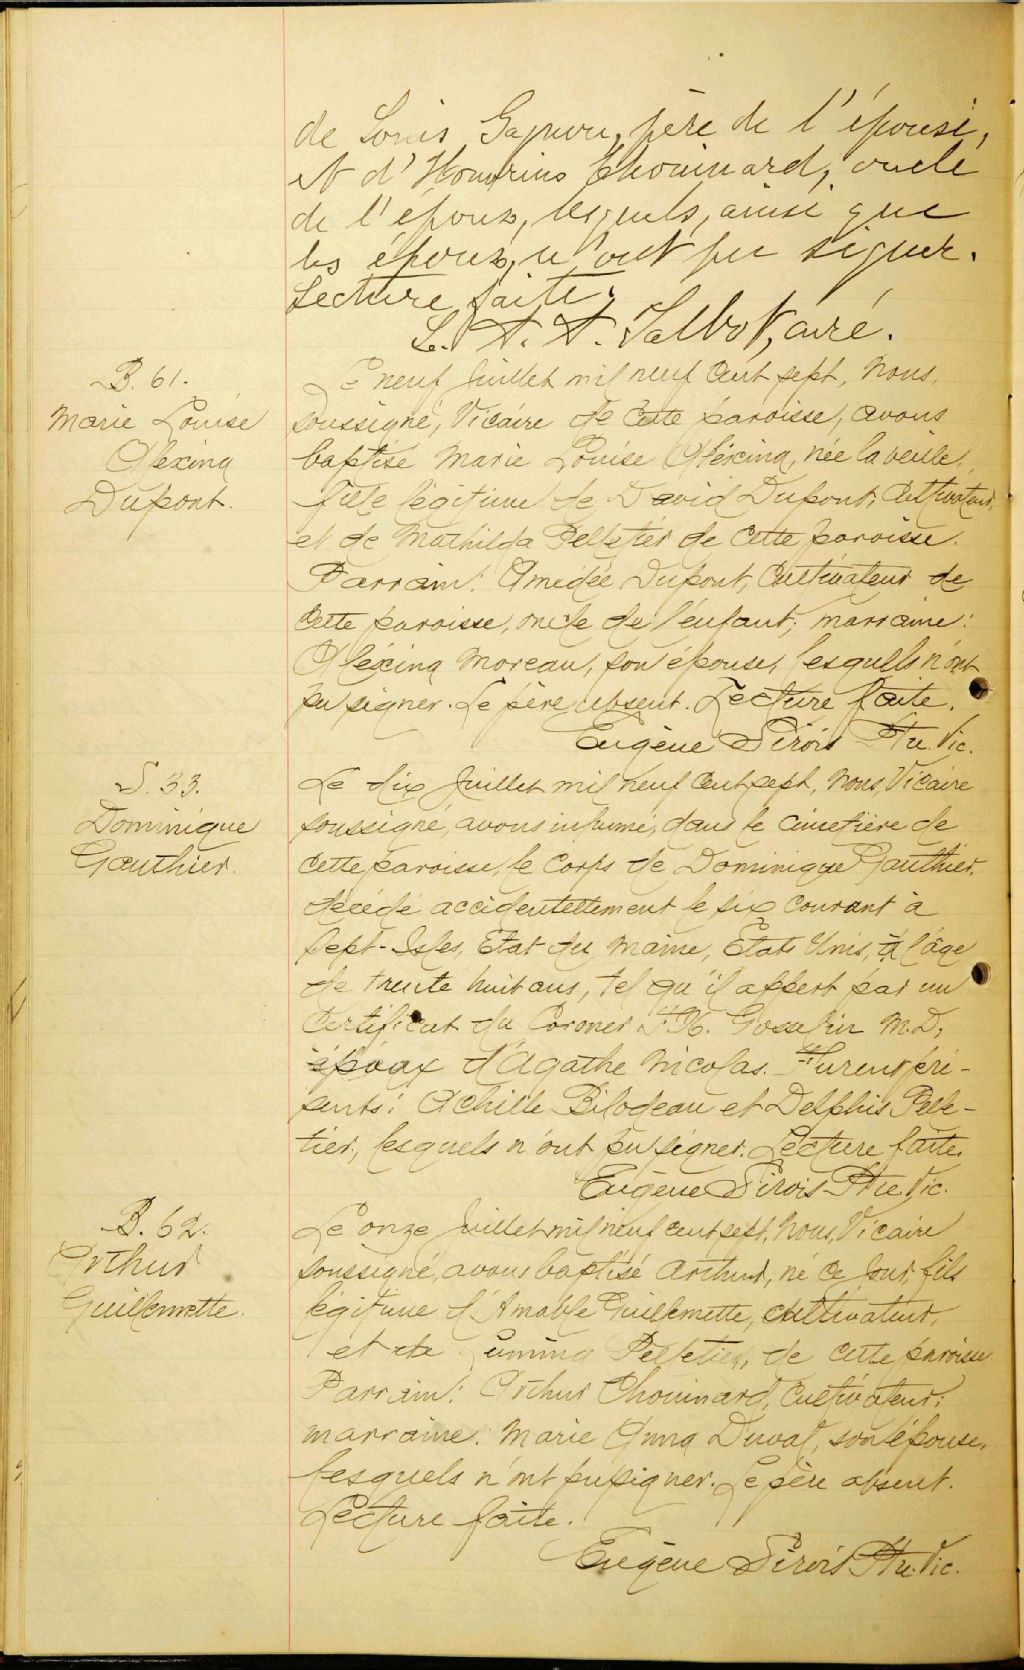 de Louis Gagnon, père de l'épouse,
et d'Honorius Chouinard, oncle
de l'époux, lesquels, ainsi que
les époux, n'ont pu signer.
Lecture faite.
L. A. A. Talbot, curé.
B. 61.
Marie Louise
Aléxina
Dupont.
Le neuf Juillet mil neuf cent sept, Nous,
soussigné, Vicaire de cette paroisse, avons
baptisé Marie Louise Aléxina, née la veille,
fille légitime de David Dupont, Cultivateur,
et de Mathilda Pelletier de cette paroisse.
Parrain: Amédée Dupont, Cultivateur de
cette paroisse, oncle de l'enfant; marraine:
Aléxina Moreau, son épouse, lesquels n'ont
pu signer. Le père absent. Lecture faite.
Eugène Sirois Ptre. Vic.
S. 33.
Dominique
Gauthier.
Le dix Juillet mil neuf cent sept, Nous, Vicaire
soussigné, avons inhumé, dans le cimetière de
cette paroisse, le corps de Dominique Gauthier,
décédé accidentellement le six courant à
Sept-Isles, Etat du Maine, Etats Unis, à l'âge
de trente huit ans, tel qu'il appert par un
Certificat du Coroner Gosselin M.D,
époux d'Agathe Nicolas. Furent pré-
sents: Achille Bilodeau et Delphis Pelle-
tier, lesquels n'ont pu signer. Lecture faite.
Eugène Sirois Ptre Vic.
B. 62.
Arthur
Guillemette.
Le onze Juillet mil neuf cent sept, Nous, Vicaire
soussigné, avons baptisé Arthur, né ce jour, fils
légitime d'Amable Guillemette, cultivateur,
et de Pelletier, de cette paroisse
Parrain: Arthur Chouinard, Cultivateur;
marraine: Marie Anna Duval, son épouse,
lesquels n'ont pu signer. Le père absent.
Lecture faite.
Eugène Sirois Ptre. Vic.